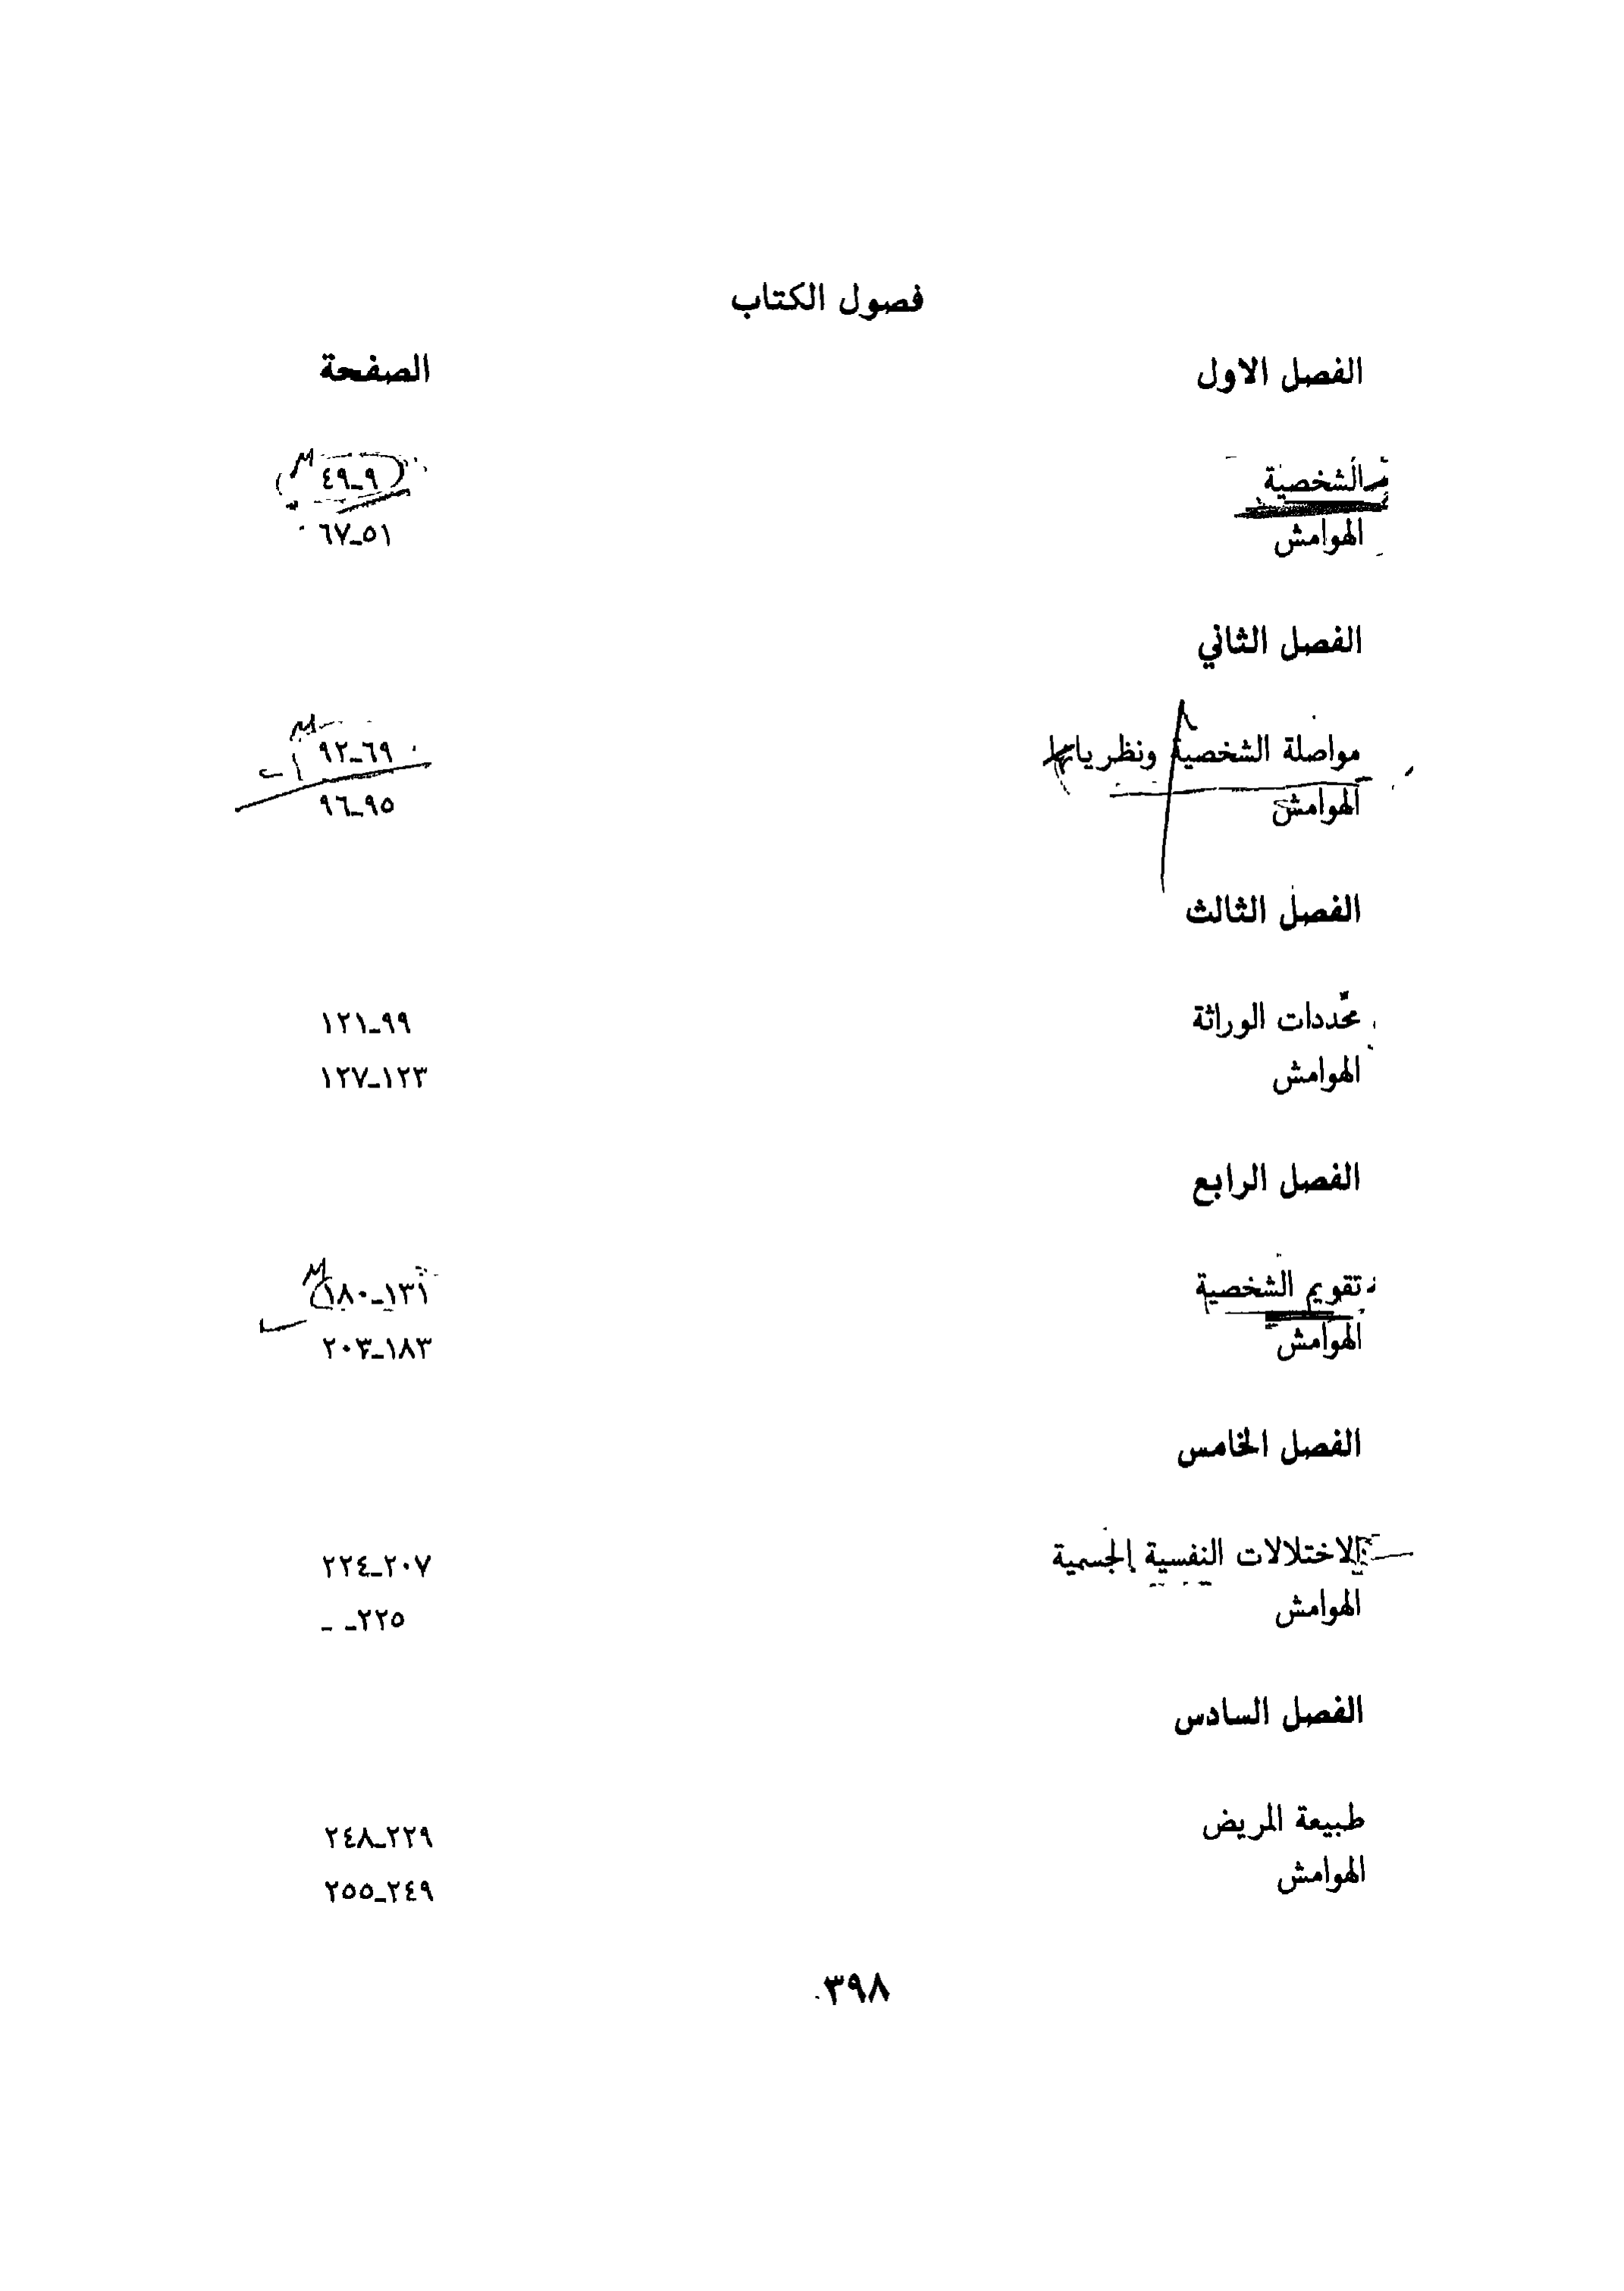 فصول الكتاب
الفصل الاول الصفحة
الشخصية ٩ـ٤٩
الهوامش ٥١ـ٦٧
الفصل الثاني
مواصلة الشخصية ونظرياتها ٦٩ـ٩٢
الهوامش ٩٥ـ٩٦
الفصل الثالث
محّددات الوراثة ٩٩ـ١٢١
الهوامش ١٢٣ـ١٢٧
الفصل الرابع
تقويم الشخصية ١٣١ـ١٨٠
الهوامش ١٨٣ـ٢٠٣
الفصل الخامس
الاختلالات النفسية الجسمية ٢٠٧ـ٢٢٤
الهوامش ٢٢٥ـ ـ
الفصل السادس
طبيعة المريض ٢٢٩ـ٢٤٨
الهوامش ٢٤٩ـ٢٥٥
٣٩٨